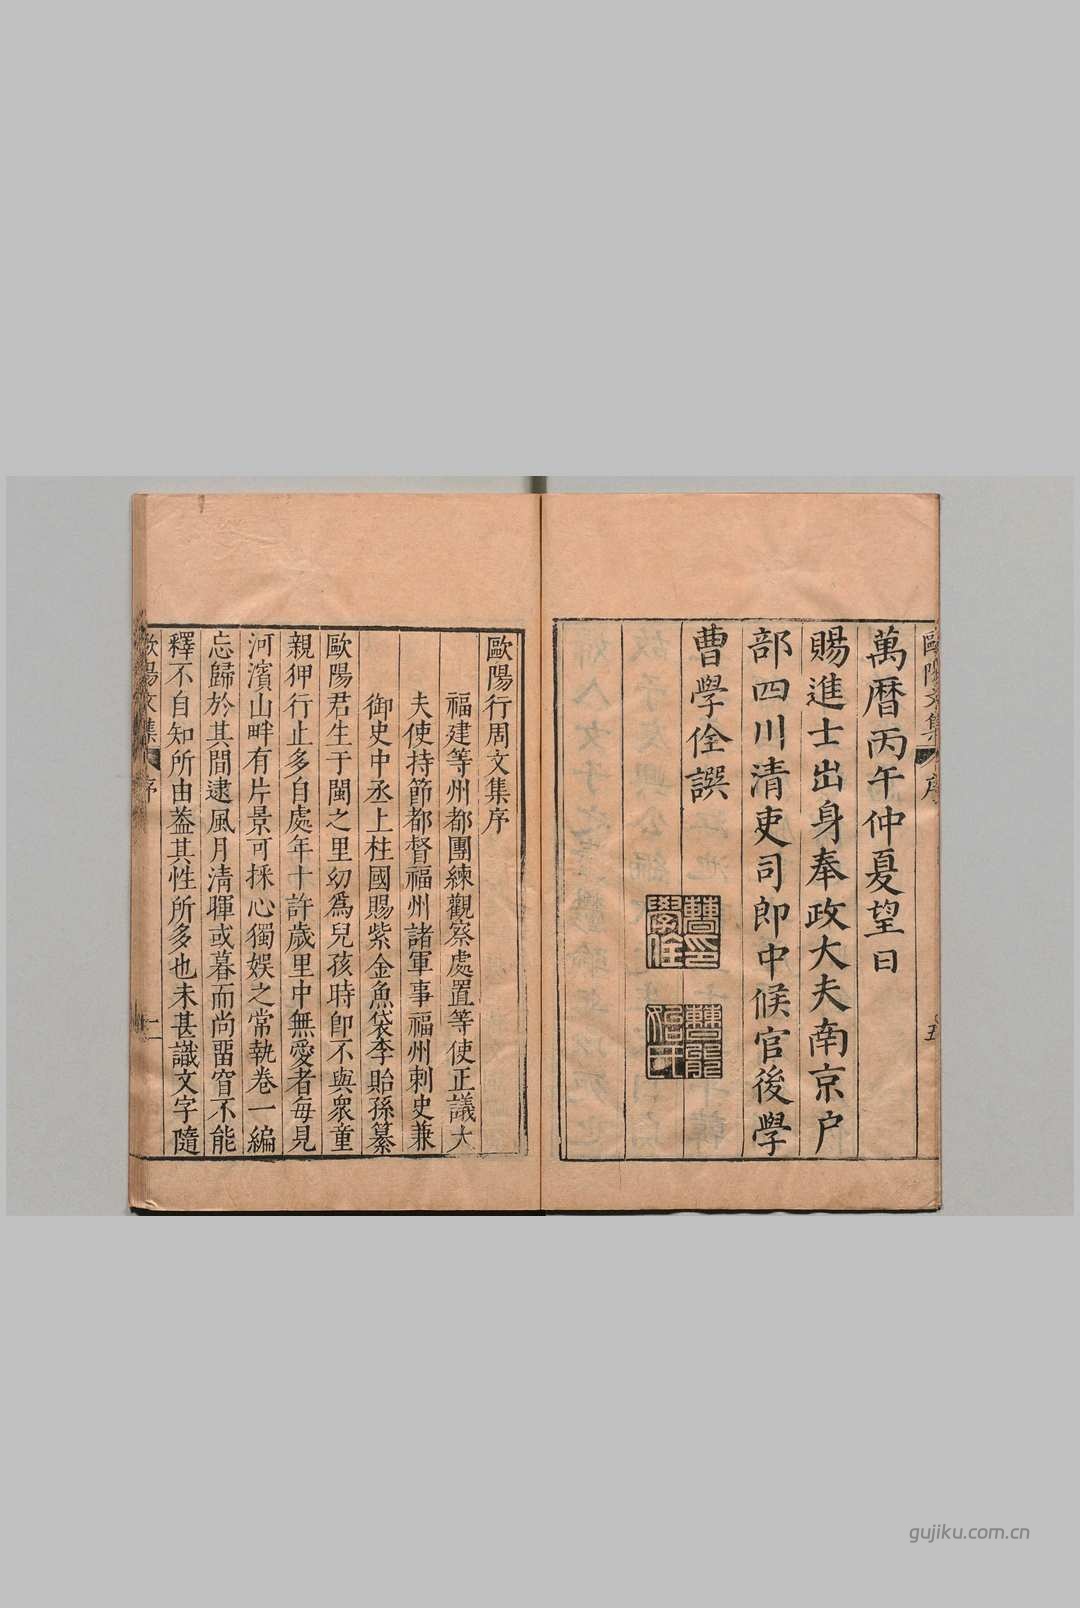 歐陽文集
序
五
萬曆丙午仲夏望日
賜進士出身奉政大夫南京户
部四川清吏司郎中候官後學
曹學佺譔
曹學佺印
曹能始氏
歐陽行周文集序
福建等州都團練觀察處置等使正議大
夫使持節都督福州諸軍事福州刺史兼
御史中丞上柱國賜紫金魚袋李貽孫纂
歐陽君生于閩之里幼爲兒孩時卽不與衆童
親狎行止多自處年十許歲里中無愛者每見
河濱山畔有片景可採心獨娱之常執卷一編
忘歸於其間逮風月清暉或暮而尚畱窅不能
釋不自知所由葢其性所多也未甚識文字隨
歐陽文集
序
一
gujiku.com.cn